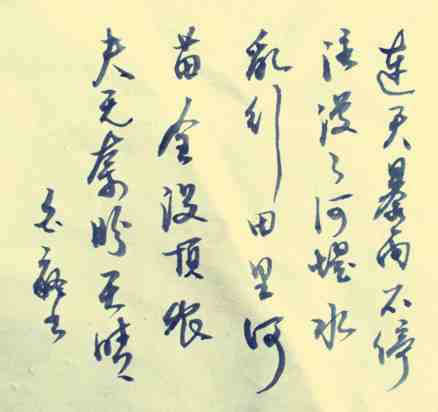 连天暴雨不停
注漫了河堤水
乱引田里河
苗全没顶农
夫无奈盼天晴